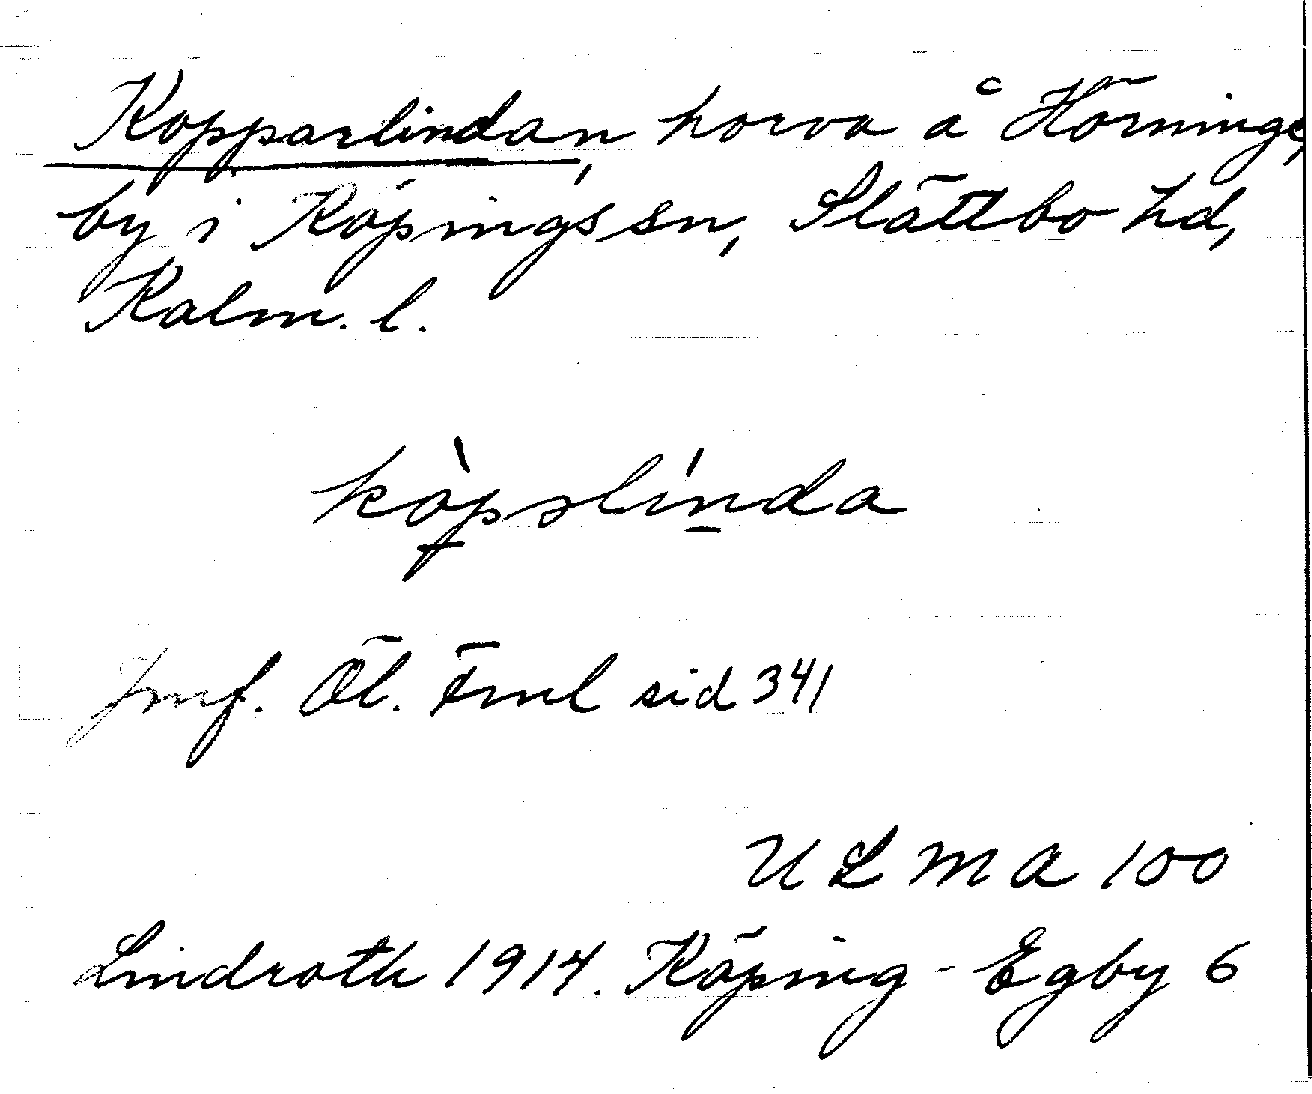 Kopparlindan, horva å Hörnings-
by i Köpings sn, Slättbo hd,
Kalm. l.
kòpslínda
Jmf. Öl. Fml sid 341
ULMA 100
Lindroth 1914. Köping - Egby 6